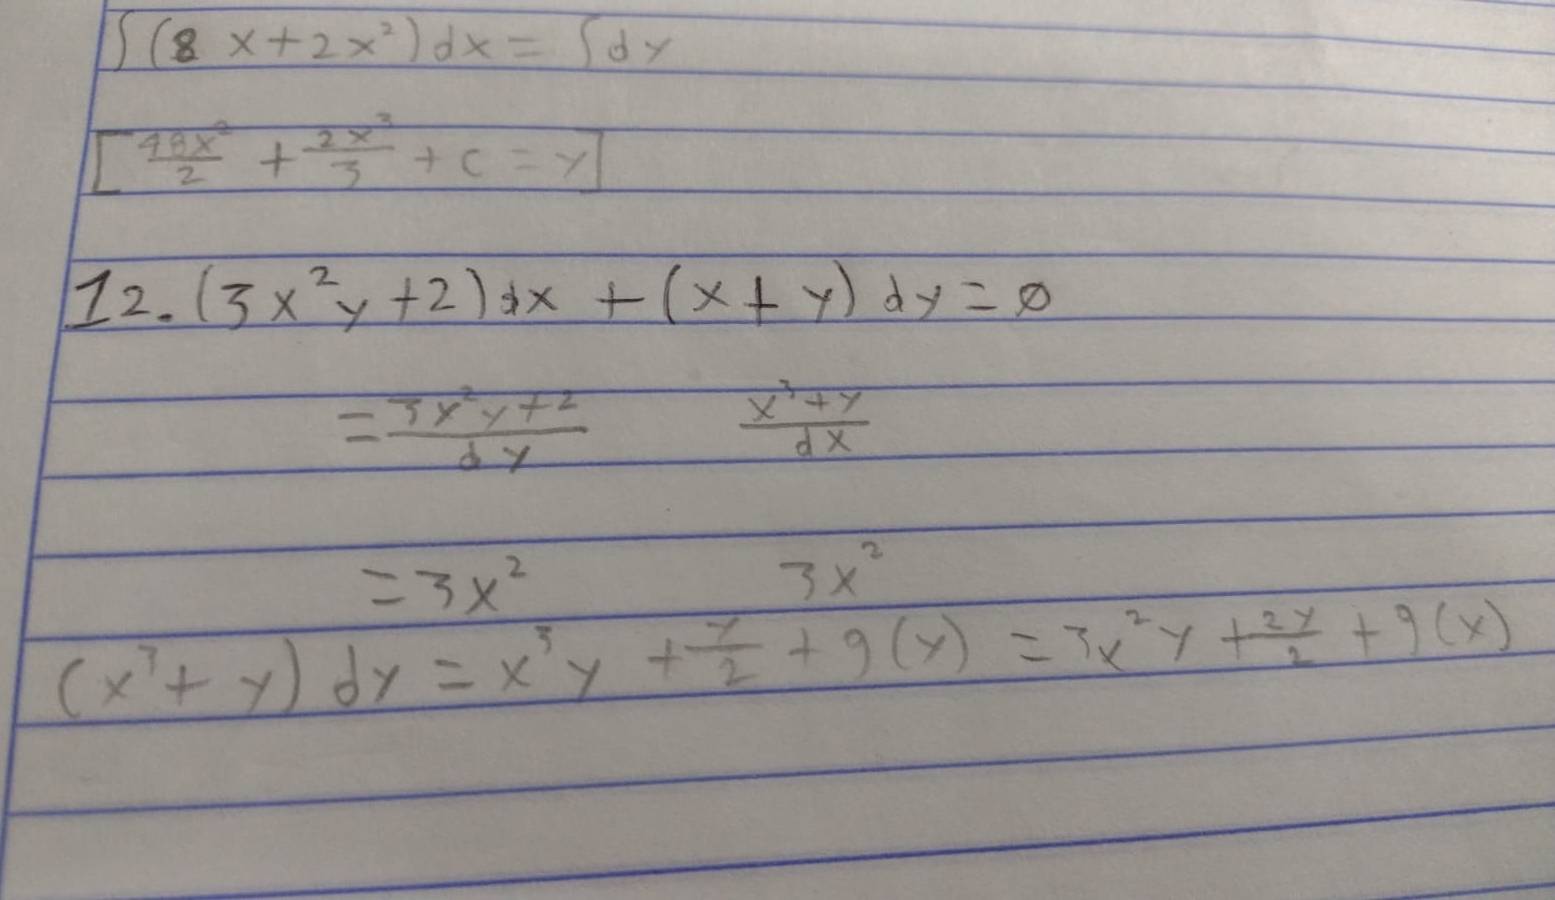 ∫(8 x+2x²)dx = ∫dy
[48x²/2 + 2x³/3 + c = y]
12. (3x²y+2)dx + (x+y)dy=0
= 3x²y+2/dy x³+y/dx
= 3x² 3x²
(x³+y)dy = x³y + y/2 + g(y) = 3x²y + 2y/2 + g(x)